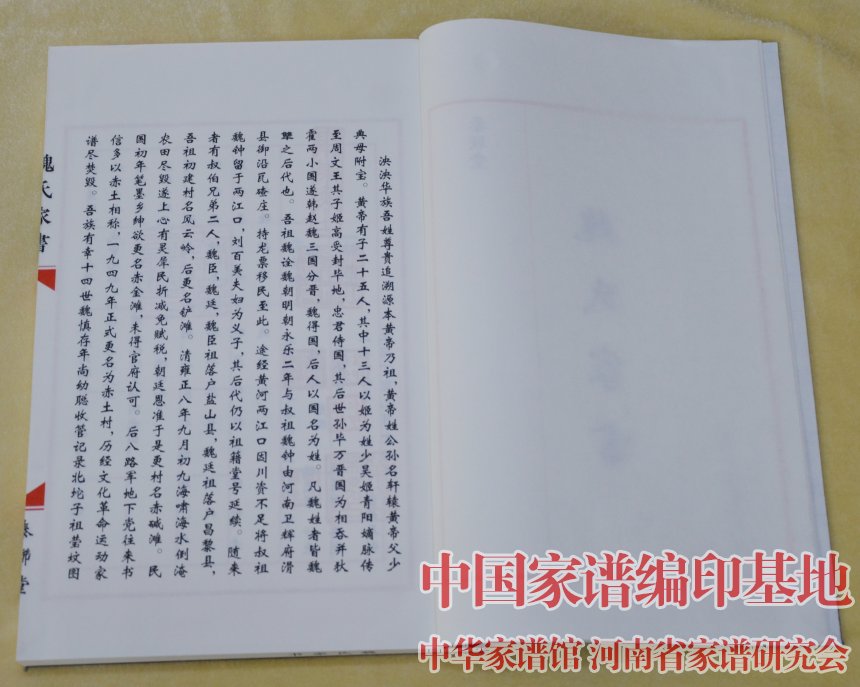 泱泱华族吾姓尊贵追溯源本黄帝乃祖，黄帝姓公孙名轩辕黄帝父少
典母附宝。黄帝有子二十五人，其中十三人以姬为姓少昊姬青阳嫡脉传
至周文王其子姬高受封毕地，忠君侍国，其后世孙毕万晋国为相吞并狄
霍两小国遂韩赵魏三国分晋，魏得国，后人以国名为姓。凡魏姓者皆魏
之后代也。吾祖魏诠魏朝明朝永乐二年与叔祖魏钟由河南卫辉府滑
县御沿瓦碴庄。持龙票移民至此。途经黄河两江口因川资不足将叔祖
魏钟留于两江口，刘百美夫妇为义子，其后代仍以祖籍堂号延续。随来
者有叔伯兄弟二人，魏臣，魏廷，魏臣祖落户盐山县，魏廷祖落户昌黎县，
吾祖初建村名风云岭，后更名铲滩。清雍正八年九月初九海啸海水倒淹
农田尽毁遂上心有灵犀民折减免赋税，朝廷恩准于是更村名赤碱滩。民
国初年笔墨乡绅欲更名赤金滩，未得官府认可。后八路军地下党往来书
信多以赤土相称，一九四九年正式更名为赤土村，历经文化革命运动家
谱尽焚毁。吾族有幸十四世魏慎存年尚幼聪收管记录北坨子祖茔坟图
魏氏家书
中国家谱编印基地
中华家谱馆 河南省家谱研究会